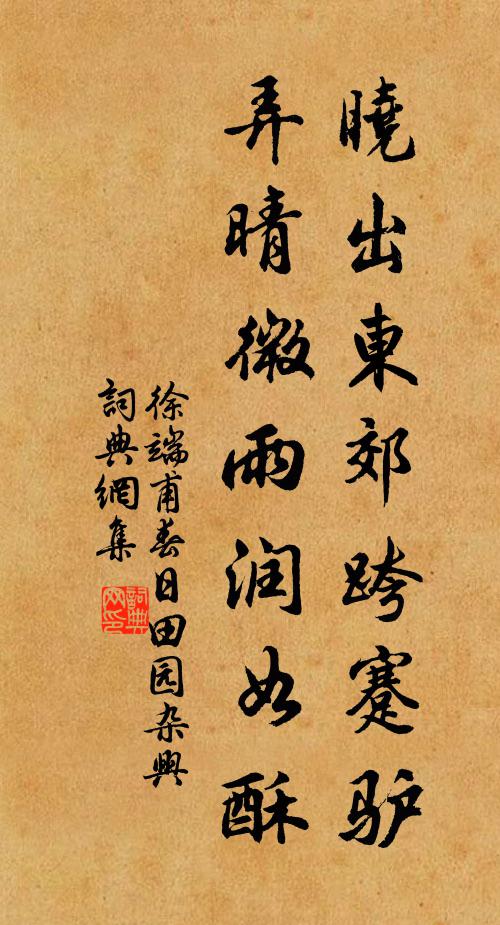 曉出東郊跨蹇驴
弄晴微雨润如酥
徐端甫春日田园杂興
詞典網集
詞典网印